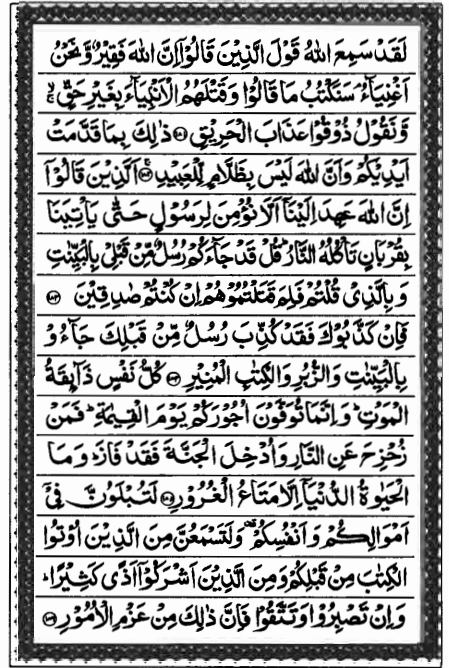 لَقَدۡ سَمِعَ اللّٰهُ قَوۡلَ الَّذِيۡنَ قَالُوۡۤا اِنَّ اللّٰهَ فَقِيۡرٌ وَّ نَحۡنُ
اَغۡنِيَآءُ‌ۘ سَنَكۡتُبُ مَا قَالُوۡا وَقَتۡلَهُمُ الۡاَنۡۢبِيَآءَ بِغَيۡرِ حَقٍّ ۙ
وَّنَقُوۡلُ ذُوۡقُوۡا عَذَابَ الۡحَرِيۡقِ ﴿۱۸۱﴾ ذٰ لِكَ بِمَا قَدَّمَتۡ
اَيۡدِيۡكُمۡ وَاَنَّ اللّٰهَ لَيۡسَ بِظَلَّامٍ لِّلۡعَبِيۡدِ‌ۚ ﴿۱۸۲﴾ اَلَّذِيۡنَ قَالُوۡۤا
اِنَّ اللّٰهَ عَهِدَ اِلَيۡنَاۤ اَلَّا نُؤۡمِنَ لِرَسُوۡلٍ حَتّٰى يَاۡتِيَنَا
بِقُرۡبَانٍ تَاۡكُلُهُ النَّارُ‌ؕ قُلۡ قَدۡ جَآءَكُمۡ رُسُلٌ مِّنۡ قَبۡلِىۡ بِالۡبَيِّنٰتِ
وَبِالَّذِىۡ قُلۡتُمۡ فَلِمَ قَتَلۡتُمُوۡهُمۡ اِنۡ كُنۡتُمۡ صٰدِقِيۡنَ ﴿۱۸۳﴾
فَاِنۡ كَذَّبُوۡكَ فَقَدۡ كُذِّبَ رُسُلٌ مِّنۡ قَبۡلِكَ جَآءُوۡ
بِالۡبَيِّنٰتِ وَالزُّبُرِ وَالۡكِتٰبِ الۡمُنِيۡرِ ﴿۱۸۴﴾ كُلُّ نَفۡسٍ ذَآٮِٕقَةُ
الۡمَوۡتِ‌ؕ وَاِنَّمَا تُوَفَّوۡنَ اُجُوۡرَكُمۡ يَوۡمَ الۡقِيٰمَةِ‌ؕ فَمَنۡ
زُحۡزِحَ عَنِ النَّارِ وَاُدۡخِلَ الۡجَنَّةَ فَقَدۡ فَازَ ؕ وَمَا
الۡحَيٰوةُ الدُّنۡيَاۤ اِلَّا مَتَاعُ الۡغُرُوۡرِ ﴿۱۸۵﴾ لَتُبۡلَوُنَّ فِىۡۤ
اَمۡوَالِكُمۡ وَاَنۡفُسِكُمۡ وَلَتَسۡمَعُنَّ مِنَ الَّذِيۡنَ اُوۡتُوا
الۡكِتٰبَ مِنۡ قَبۡلِكُمۡ وَمِنَ الَّذِيۡنَ اَشۡرَكُوۡۤا اَذًى كَثِيۡـرًا‌ؕ
وَاِنۡ تَصۡبِرُوۡا وَتَتَّقُوۡا فَاِنَّ ذٰ لِكَ مِنۡ عَزۡمِ الۡاُمُوۡرِ ﴿۱۸۶﴾